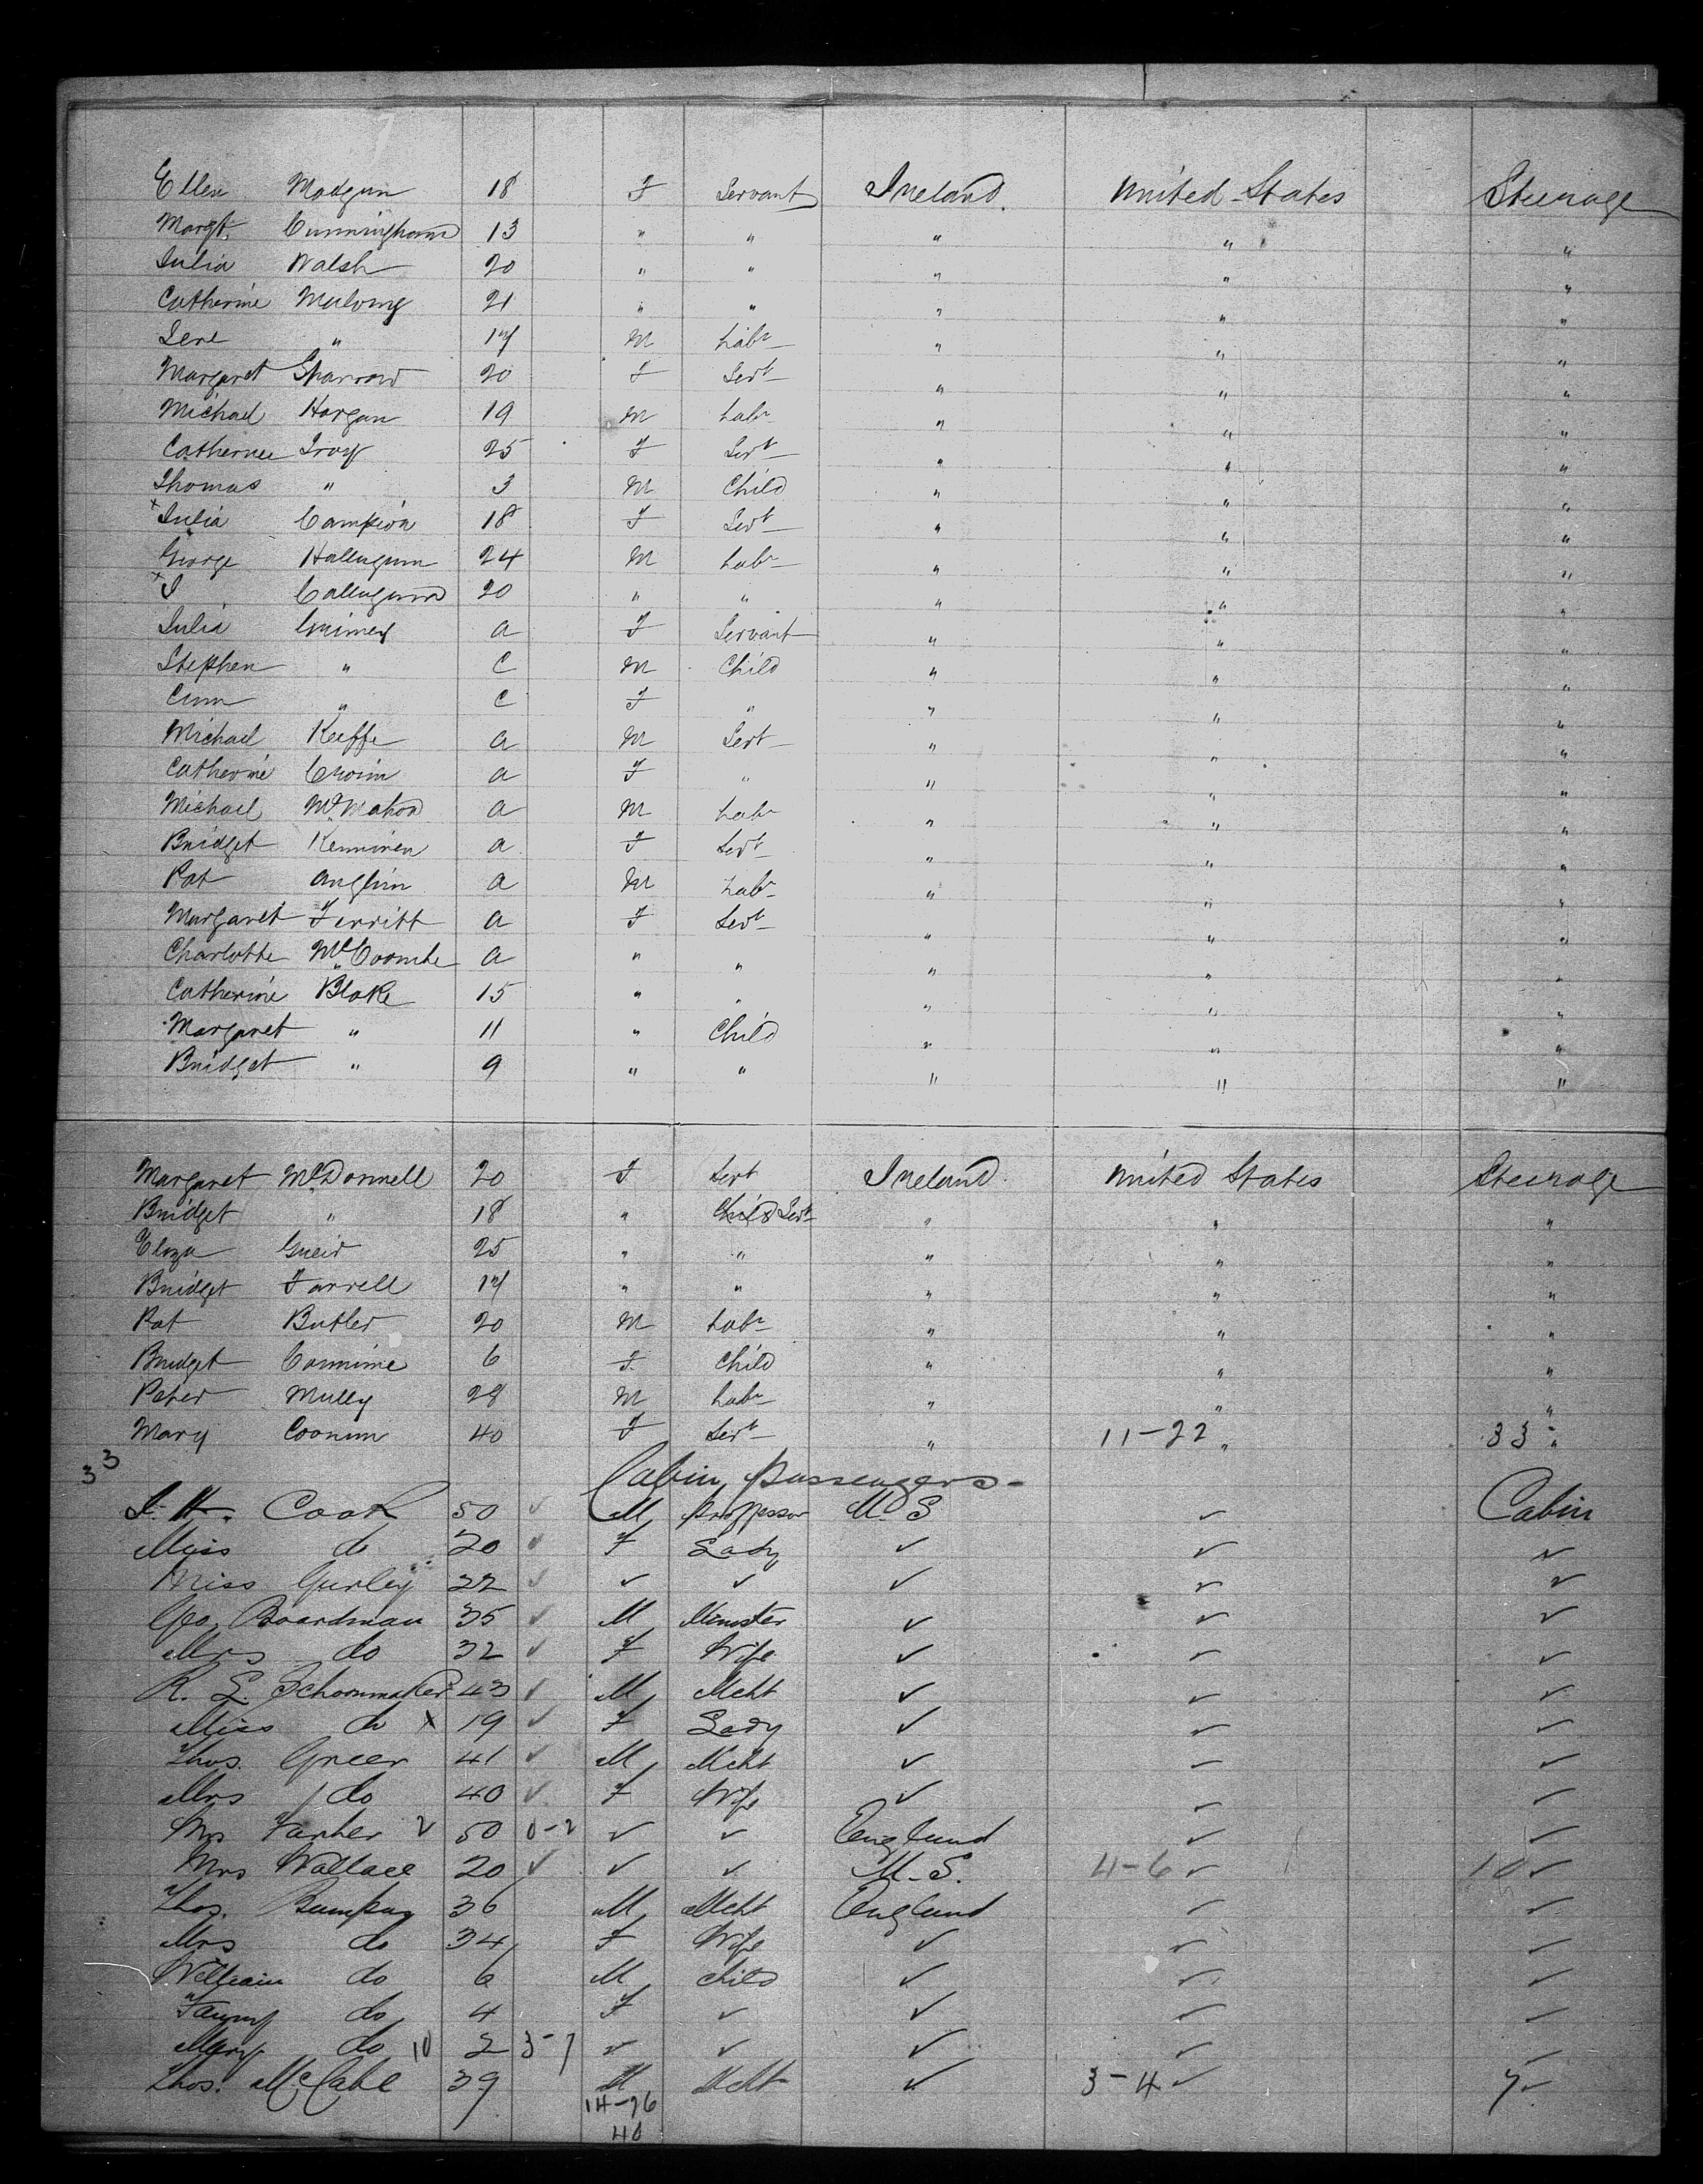 Ellen Madgun 18 F Servant Ireland United States Steerage
Margt. Cunningham 13 " " " " "
Julia Walsh 20 " " " " "
Catherine 21 " " " " "
" 17 M Labr " " "
Margaret Sparrow 20 F Servt " " "
Michael Horgan 19 M Labr " " "
Catherine Troy 25 F Servt " " "
Thomas " 3 M Child " " "
x Julia Campion 18 F Servt " " "
George 24 M Labr " " "
x J 20 " " " " "
Julia Grimes a F Servant " " "
Stephen " C M Child " " "
" C F " " " "
Michael Keeffe a M Servt " " "
Catherine a F " " " "
Michael McMahon a M Labr " " "
Bridget a F Servt " " "
Pat Anglim a M Labr " " "
Margaret Ferritt a F Servt " " "
Charlotte McCoombe a " " " " "
Catherine Blake 15 " " " " "
Margaret " 11 " Child " " "
Bridget " 9 " " " " "
Margaret McDonnell 20 F Servt Ireland United States Steerage
Bridget " 18 " Child Servt " " "
Eliza 25 " " " " "
Bridget Farrell 17 " " " " "
Pat Butler 20 M Labr " " "
Bridget 6 F Child " " "
Peter Mully 28 M Labr " " "
Mary 40 F Servt " 11-22 " 33 "
33 Cabin Passengers -
Cook 50 ✓ M Professor U S ✓ Cabin
Miss do 20 ✓ F Lady ✓ ✓ ✓
Miss Gurley 22 ✓ ✓ ✓ ✓ ✓ ✓
Geo. Boardman 35 ✓ M Minister ✓ ✓ ✓
Mrs do 32 ✓ F Wife ✓ ✓ ✓
R. L. Schoonmaker 43 ✓ M Mcht ✓ ✓ ✓
Miss do x 19 ✓ F Lady ✓ ✓ ✓
Thos. Greer 41 ✓ M Mcht ✓ ✓ ✓
Mrs do 40 ✓ F Wife ✓ ✓ ✓
Mrs 2 50 0-2 ✓ ✓ England ✓ ✓
Mrs Wallace 20 ✓ ✓ ✓ U.S. 4-6 ✓ 10 ✓
Thos. Bumpus 36 M Mcht England ✓ ✓
Mrs do 34 F Wife ✓ ✓ ✓
William do 6 M Child ✓ ✓ ✓
Fanny do 4 F ✓ ✓ ✓ ✓
Mary do 10 2 3-7 ✓ ✓ ✓ ✓ ✓
Thos. McCabe 39 M Mcht ✓ 3-4 ✓ 7 ✓
14-26
40